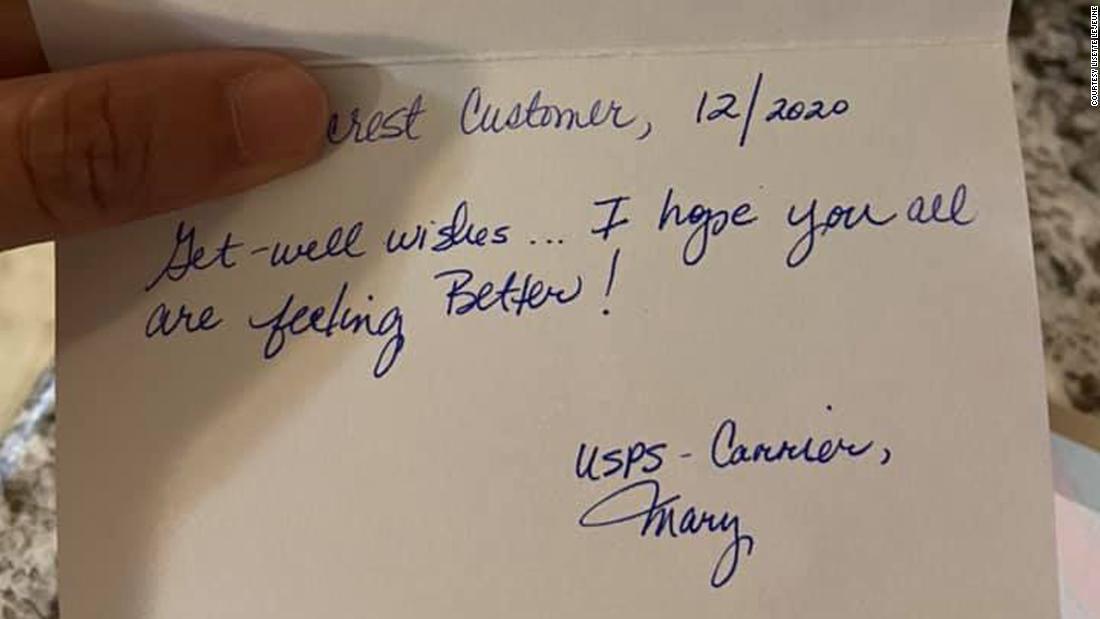 erest Customer, 12/2020
Get-well wishes... I hope you all
are feeling Better!
USPS - Carrier,
Mary
COURTESY LISETTE LEJEUNE